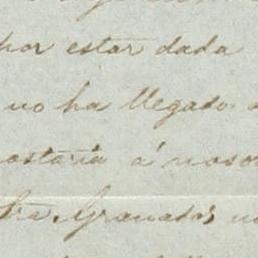 por estar dada
no ha llegado
ostaria á noso
Granados no